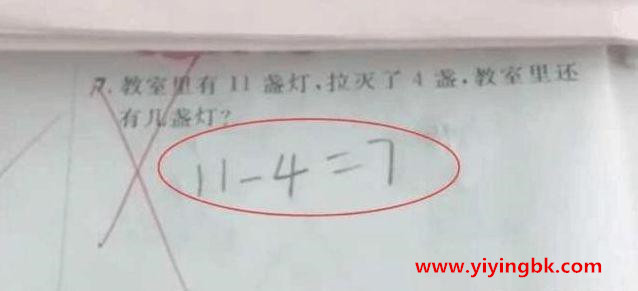 7. 教室里有 11 盏灯,拉灭了 4 盏,教室里还
有几盏灯?
11-4=7
www.yiyingbk.com